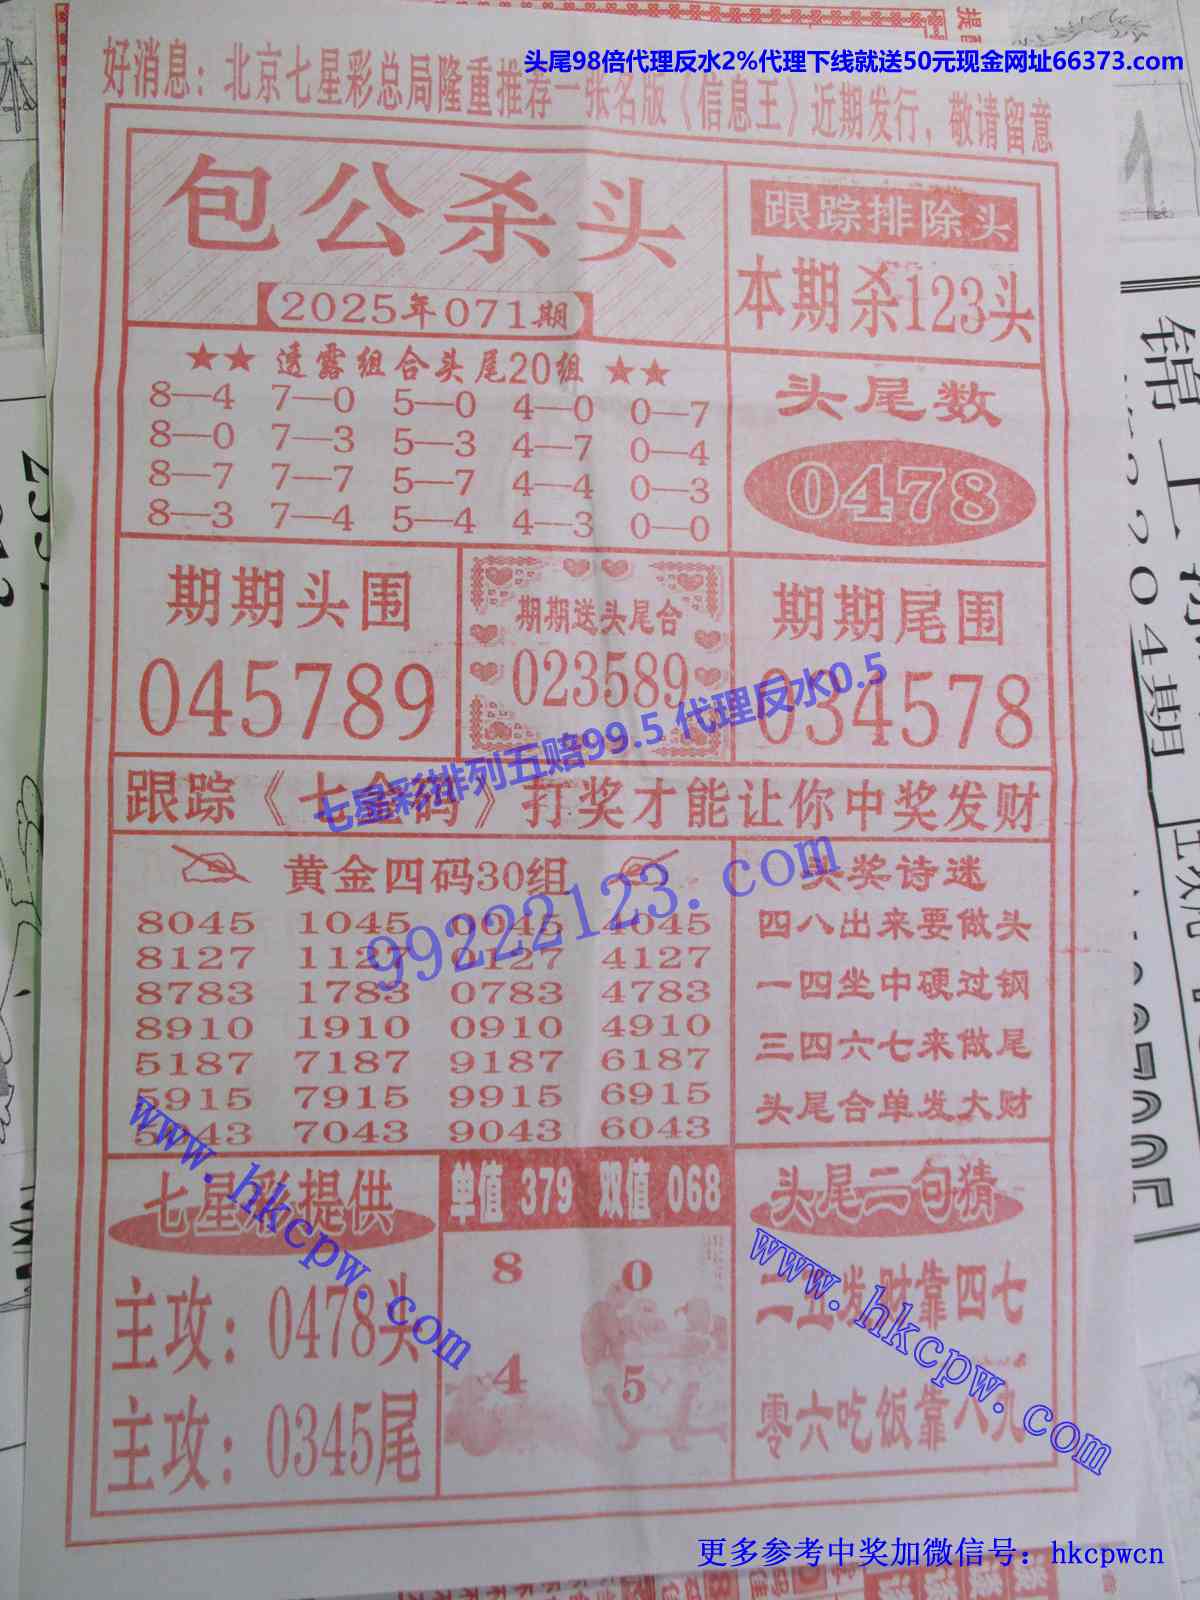 头尾98倍代理反水2%代理下线就送50元现金网址66373.com
好消息：北京七星彩总局隆重推荐一张名版《信息王》近期发行，敬请留意
包公杀头
【2025年071期】
跟踪排除头
本期杀123头
★★ 透露组合头尾20组 ★★
8—4 7—0 5—0 4—0 0—7
8—0 7—3 5—3 4—7 0—4
8—7 7—7 5—7 4—4 0—3
8—3 7—4 5—4 4—3 0—0
头尾数
0478
期期头围
045789
期期送头尾合
023589
期期尾围
034578
七星彩排列五赔99.5 代理反水0.5
跟踪《七金码》打奖才能让你中奖发财
黄金四码30组
8045 1045 0045 4045
8127 1127 0127 4127
8783 1783 0783 4783
8910 1910 0910 4910
5187 7187 9187 6187
5915 7915 9915 6915
5043 7043 9043 6043
99222123.com
头奖诗迷
四八出来要做头
一四坐中硬过钢
三四六七来做尾
头尾合单发大财
七星彩提供
主攻：0478头
主攻：0345尾
www.hkcpw.com
单值 379 双值 068
8 0
4 5
头尾二句猜
二五发财靠四七
零六吃饭靠八九
www.hkcpw.com
更多参考中奖加微信号：hkcpwcn
204期